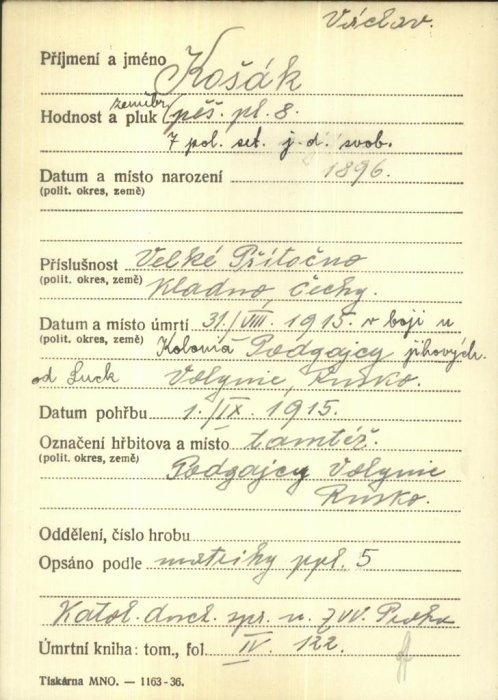 Václav.
Příjmení a jméno Košák
zeměbr.
Hodnost a pluk pěš. pl. 8.
7 pol. set. j. d. svob.
Datum a místo narození 1896.
(polit. okres, země)
Příslušnost Velké Přítočno
(polit. okres, země) Kladno, Čechy.
Datum a místo úmrtí 31./VIII. 1915. v boji u
(polit. okres, země) Kolonia Podgajcy jihových.
od Luck Volynie, Rusko.
Datum pohřbu 1./IX. 1915.
Označení hřbitova a místo tamtéž.
(polit. okres, země) Podgajcy Volynie
Rusko.
Oddělení, číslo hrobu
Opsáno podle matriky ppl. 5
Katol. duch. spr. u ZVV. Praha
Úmrtní kniha: tom., fol. IV. 122.
Tiskárna MNO. — 1163-36.